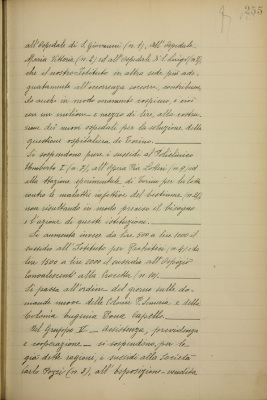 255
all'Ospedale di S. Giovanni (n. 1), all'Ospedale
Maria Vittoria (n. 2) ed all'Ospedale S. Luigi (n. 3),
che il nostro Istituto in altra sede, più ade-
guatamente all'occorrenza soccorse, contribuen-
do anche in modo veramente cospicuo, e cioè
con un milione e mezzo di lire, alla costru-
zione dei nuovi ospedali per la soluzione della
questione ospitaliera di Torino.
Si sospendono pure i sussidi al Policlinico
Umberto I (n. 7), all'Opera Pia Lotteri (n. 9) ed
alla Stazione sperimentale di Torino per la lotta
contro le malattie infettive del bestiame (n. 12),
non risultando in modo preciso il bisogno
e l'azione di queste istituzioni.
Si aumenta invece da lire 500 a lire 1000 il
sussidio all'Istituto per Rachitici (n. 6) e da
lire 1500 a lire 2000 il sussidio all'Ospizio
Convalescenti alla Crocetta (n. 10).
Si passa all'ordine del giorno sulle do-
mande nuove delle Colonie P. Lunaria e della
Colonia Eugenia Bona Capello.
Nel Gruppo V. - Assistenza, previdenza
e cooperazione - si sospendono, per le
già dette ragioni, i sussidi alla Società
Carlo Pozzi (n. 3), all'Esposizione-vendita